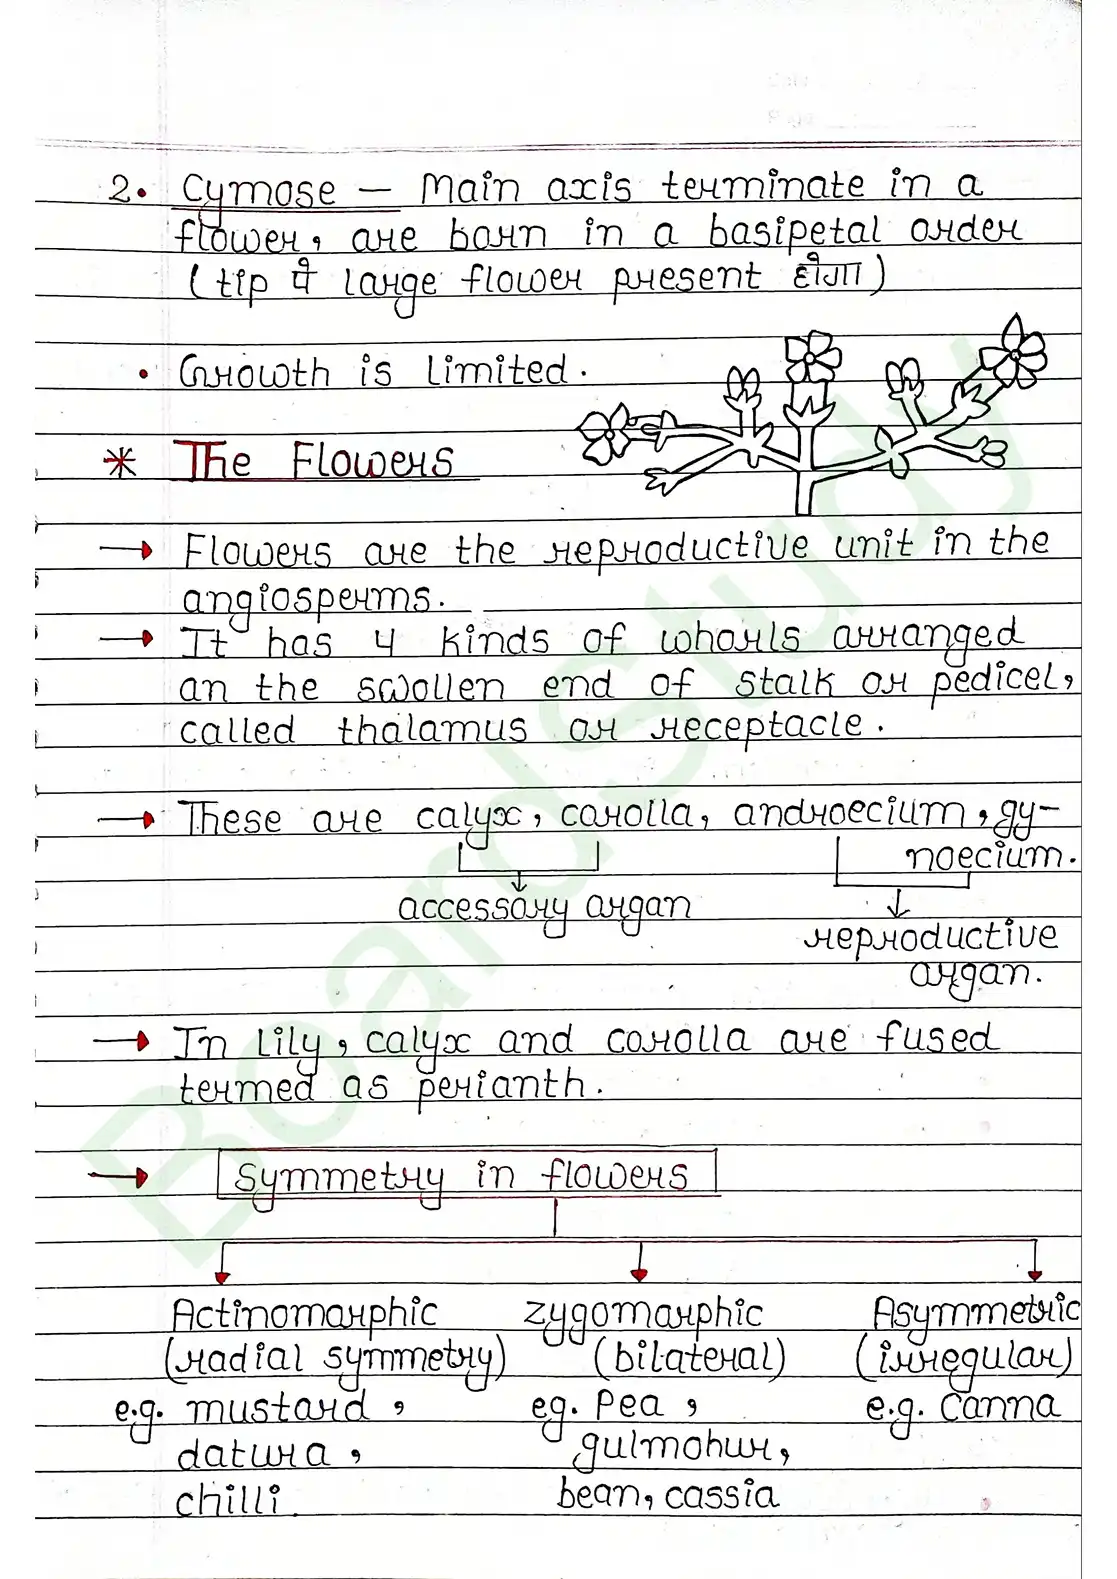 2. Cymose — Main axis terminate in a
flower, are born in a basipetal order
(tip पे large flower present होगा)
• Growth is limited.
* The Flowers
→ Flowers are the reproductive unit in the
angiosperms.
→ It has 4 kinds of whorls arranged
an the swollen end of stalk or pedicel,
called thalamus or receptacle.
→ These are calyx, corolla, androecium, gy-
noecium.
accessory organ
reproductive
organ.
→ In Lily, calyx and corolla are fused
termed as perianth.
→ Symmetry in flowers
Actinomorphic zygomorphic Asymmetric
(radial symmetry) (bilateral) (irregular)
e.g. mustard, eg. Pea, e.g. Canna
datura, gulmohur,
chilli bean, cassia
BoardStudy